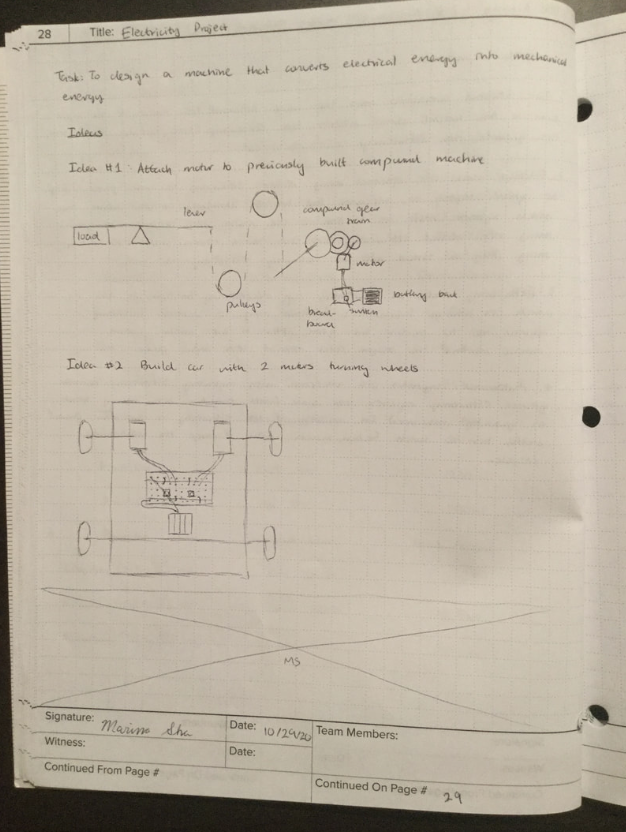 28 Title: Electricity Project
Task: To design a machine that converts electrical energy into mechanical
energy
Ideas
Idea #1: Attach motor to previously built compound machine
lever
compound gear
train
load
motor
pulleys
battery
bread-
board
button
Idea #2 Build car with 2 motors turning wheels
MS
Signature:
Date: 10/29/20
Team Members:
Witness:
Date:
Continued From Page #
Continued On Page # 29